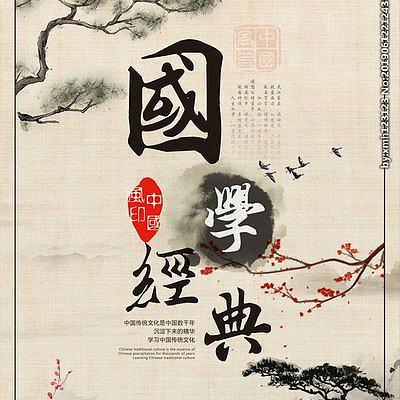 國
學
經
典
中國
風印
中國
風印
中国传统文化是中国数千年
沉淀下来的精华
学习中国传统文化
Chinese traditional culture is the essence of
Chinese precipitation for thousands of years
Learning Chinese traditional culture
by:xmh123123-No:20190612221243